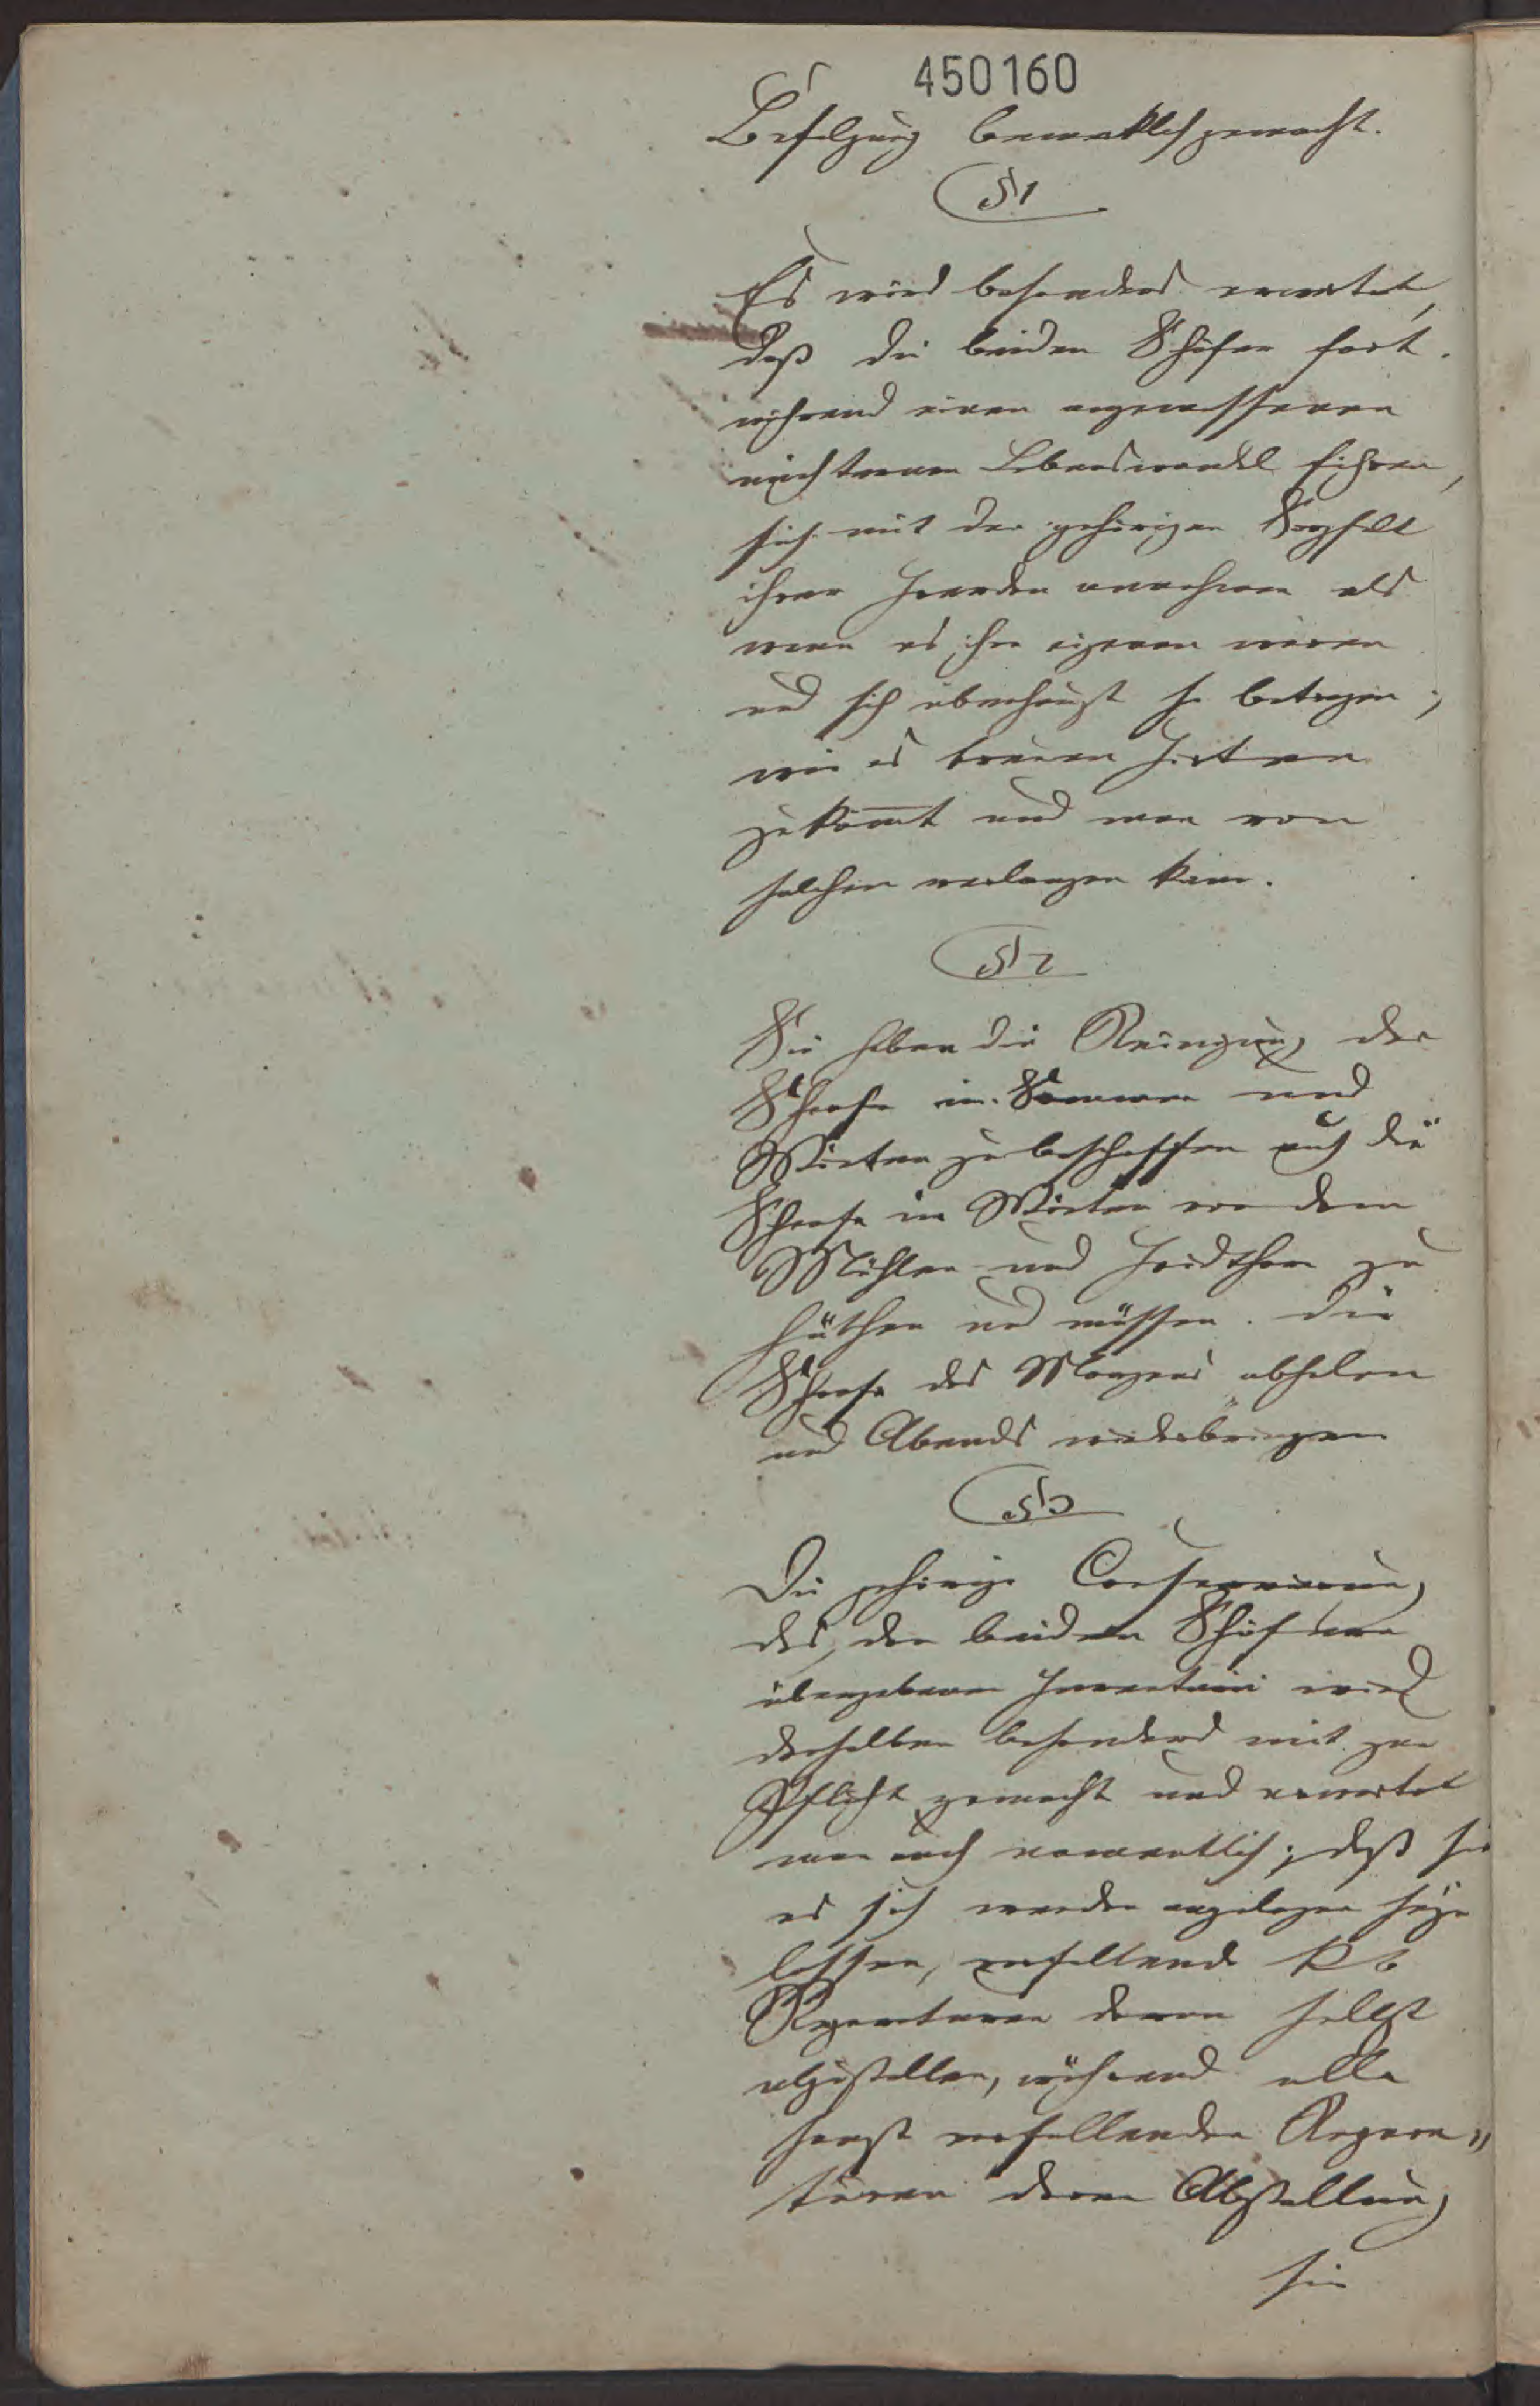 450160
Befolgung bemerklich gemacht.
§ 1
Es wird besonders erwartet,
daß die beiden Schäfer fort¬
während einen angemessenen
nüchternen Lebenswandel führen,
sich mit der gehörigen Sorgfalt
ihrer Heerden annehmen als
wenn es ihre eigenen wären
und sich überhaupt so betragen,
wie es treuen Hirten
zukom̅t und man von
solchen verlangen kann.
§ 2
Sie haben die Reinigung der
Schaafe im Sommer und
Winter zu beschaffen auch die
Schaafe im Winter vor dem
Mühlen und
hüthen und müssen die
Schaafe des Morgens abholen
und Abends wiederbringen
§ 3
Die gehörige Conservirung
des, den beiden Schäfern
übergebenen Inventarii wird
denselben besonders mit zur
Pflicht gemacht und erwartet
man auch namentlich, daß sie
es sich werden angelegen seyn
lassen, vorfallende
Reparaturen daran selbst
abzustellen, während alle
sonst vorfallenden Repara„
turen deren Abstellung
sie